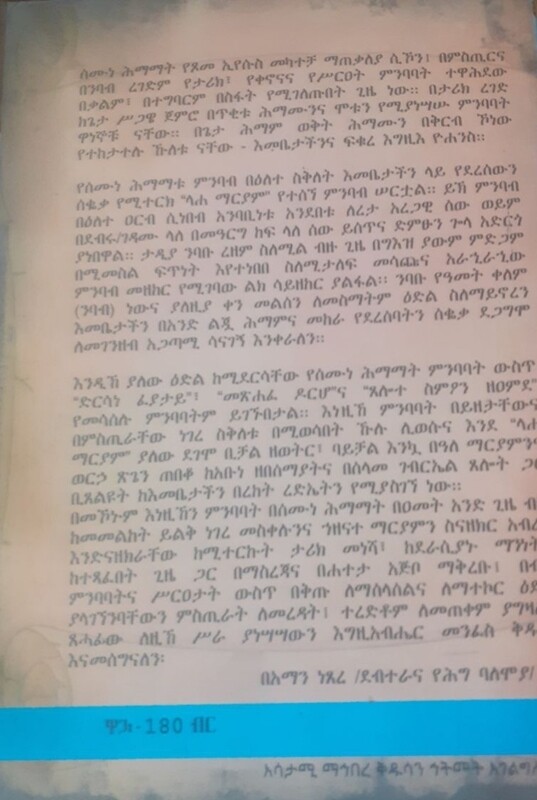 ሰሙነ ሕማማት የጾመ ኢየሱስ መካተቻ ማጠቃለያ ሲኾን፤ በምስጢርና
በንባብ ረገድም የታሪክ፤ የቀኖናና የሥርዐት ምንባባት ተዋሕደው
በቃልም፤ በተግባርም በስፋት የሚገለጡበት ጊዜ ነው። በታሪክ ረገድ
ከጌታ ሥጋዌ ጀምሮ በጥቂቱ ሕማሙንና ሞቱን የሚያነሣሡ ምንባባት
ዋነኞቹ ናቸው። በጌታ ሕማም ወቅት ሕማሙን በቅርብ ኾነው
የተከታተሉ ኹለቱ ናቸው - እመቤታችንና ፍቁረ እግዚእ ዮሐንስ።
የሰሙነ ሕማማቱ ምንባብ በዕለተ ስቅለት እመቤታችን ላይ የደረሰውን
ሰቈቃ የሚተርክ "ላሐ ማርያም" የተሰኘ ምንባብ ሠርቷል። ይኽ ምንባብ
በዕለተ ዐርብ ሲነበብ አንባቢነቱ እንደበቱ ለረታ አረጋዊ ሰው ወይም
በደብሩ/ገዳሙ ላለ በመዓርግ ከፍ ላለ ሰው ይሰጥና ድምፁን ጐላ አድርጎ
ያነበዋል። ታዲያ ንባቡ ረዘም ስለሚል ብዙ ጊዜ በግእዝ ያውም ምድጋም
በሚመስል ፍጥነት እየተነበበ ስለሚታለፍ መሳጩና አራኅራኂው
ምንባብ መዘከር የሚገባው ልክ ሳይዘከር ያልፋል። ንባቡ የዓመት ቀለም
(ንባብ) ነውና ያለዚያ ቀን መልሰን ለመስማትም ዕድል ስለማይኖረን
እመቤታችን በአንድ ልጇ ሕማምና መከራ የደረሰባትን ሰቈቃ ደጋግሞ
ለመገንዘብ አጋጣሚ ሳናገኝ እንቀራለን።
እንዲኽ ያለው ዕድል ከሚደርሳቸው የሰሙነ ሕማማት ምንባባት ውስጥ
"ድርሳነ ፊያታይ"፤ "መጽሐፈ ዶርሆ"ና "ጸሎተ ስምዖን ዘዐምደ"
የመሳሰሉ ምንባባትም ይገኙበታል። እነዚኽ ምንባባት በይዘታቸውና
በምስጢራቸው ነገረ ስቅለቱ በሚወሳበት ኹሉ ሊወሱና እንደ "ላሐ
ማርያም" ያለው ደገሞ ቢቻል ዘወትር፤ ባይቻል እንኳ በዓለ ማርያምን
ወርኃ ጽጌን ጠበቆ ከአቡነ ዘበሰማያትና በሰላመ ገብርኤል ጸሎት
ቢጸልዩት ከእመቤታችን በረከት ረድኤትን የሚያስገኝ ነው።
በመኾኑም እነዚኽን ምንባባት በሰሙነ ሕማማት በዐመት አንድ ጊዜ
ከመመልከት ይልቅ ነገረ መስቀሉንና ኀዘናተ ማርያምን ስናዘክር
እንድናዘክራቸው ከሚተርኩት ታሪክ መነሻ፤ ከደራሲያኑ ማንነት
ከተጻፈበት ጊዜ ጋር በማስረጃና በሐተታ አጅቦ ማቅረቡ፤
ምንባባትና ሥርዐታት ውስጥ በቅጡ ለማሰላሰልና ለማተኮር
ያላገኘንባቸውን ምስጢራት ለመረዳት፤ ተረድቶም ለመጠቀም
ጸሓፊው ለዚኽ ሥራ ያነሣሣውን እግዚአብሔር መንፈስ ቅዱ
እናመሰግናለን፡
በአማን ነጸረ /ደብተራና የሕግ ባለሞያ/
ዋጋ - 180 ብር
አሳታሚ ማኅበረ ቅዱሳን ኅትመት አገልግ